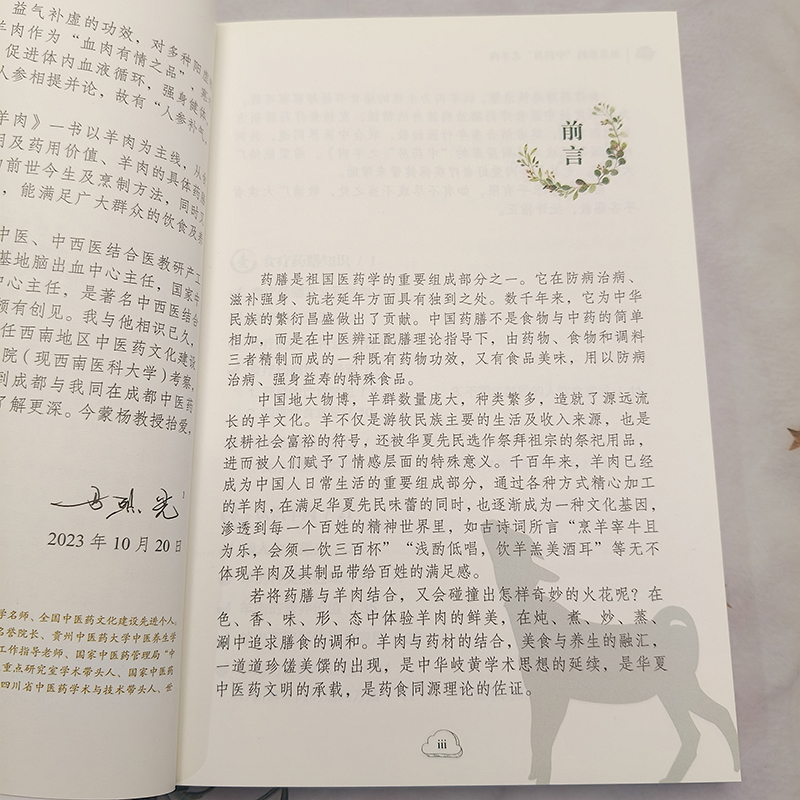 益气补虚的功效，对多种阳虚
羊肉作为“血肉有情之品”，
促进体内血液循环，强身健体
人参相提并论，故有“人参补气，
羊肉》一书以羊肉为主线，从
用及药用价值、羊肉的具体药膳
的前世今生及烹制方法，同时又
，能满足广大群众的饮食及养
中医、中西医结合医教研产工
基地脑出血中心主任，国家中
中心主任，是著名中西医结合
颇有创见。我与他相识已久，
任西南地区中医药文化建设
院（现西南医科大学）考察，
到成都与我同在成都中医药
了解更深。今蒙杨教授抬爱，
1
2023 年 10 月 20 日
学名师、全国中医药文化建设先进个人、
名誉院长、贵州中医药大学中医养生学
工作指导老师、国家中医药管理局“中
重点研究室学术带头人、国家中医药
四川省中医药学术与技术带头人、世
前言
药膳是祖国医药学的重要组成部分之一。它在防病治病、
滋补强身、抗老延年方面具有独到之处。数千年来，它为中华
民族的繁衍昌盛做出了贡献。中国药膳不是食物与中药的简单
相加，而是在中医辨证配膳理论指导下，由药物、食物和调料
三者精制而成的一种既有药物功效，又有食品美味，用以防病
治病、强身益寿的特殊食品。
中国地大物博，羊群数量庞大，种类繁多，造就了源远流
长的羊文化。羊不仅是游牧民族主要的生活及收入来源，也是
农耕社会富裕的符号，还被华夏先民选作祭拜祖宗的祭祀用品，
进而被人们赋予了情感层面的特殊意义。千百年来，羊肉已经
成为中国人日常生活的重要组成部分，通过各种方式精心加工
的羊肉，在满足华夏先民味蕾的同时，也逐渐成为一种文化基因，
渗透到每一个百姓的精神世界里，如古诗词所言“烹羊宰牛且
为乐，会须一饮三百杯”“浅酌低唱，饮羊羔美酒耳”等无不
体现羊肉及其制品带给百姓的满足感。
若将药膳与羊肉结合，又会碰撞出怎样奇妙的火花呢？在
色、香、味、形、态中体验羊肉的鲜美，在炖、煮、炒、蒸、
涮中追求膳食的调和。羊肉与药材的结合，美食与养生的融汇，
一道道珍馐美馔的出现，是中华岐黄学术思想的延续，是华夏
中医药文明的承载，是药食同源理论的佐证。
iii